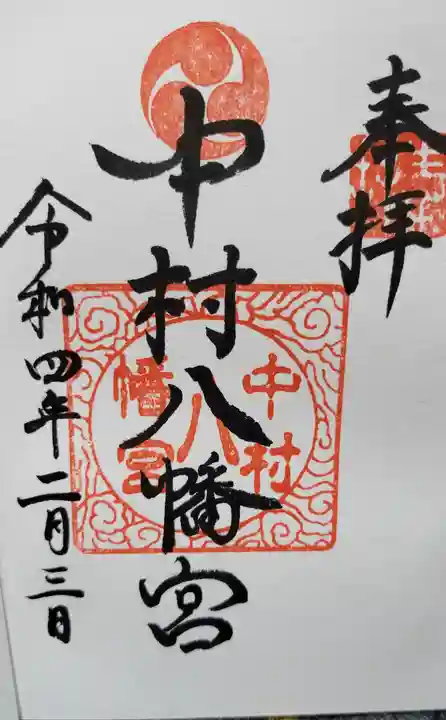 奉拝
中村八幡宮
中村
八
幡宮
令和四年二月三日